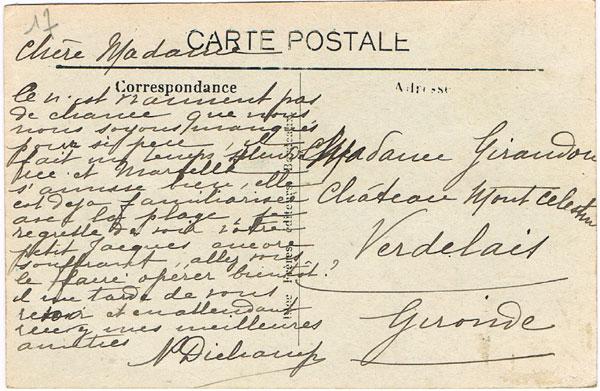 17
Chère Madame
CARTE POSTALE
Correspondance
Adresse
Ce n'est vraiment pas
de chance que nous
nous soyons manqués
pour si peu, il
fait un temps
et Marcelle
s'amuse bien, elle
est déja familiarisée
avec la plage, je
regrette de voir votre
petit Jacques encore
souffrant, allez vous
le faire opérer bientôt?
il me tarde de vous
revoir et en attendant
recevez mes meilleures
amitiés
N Dichamp
Madame Girandon
Château Mont Célestin
Verdelais
Gironde
Frères, éditeurs